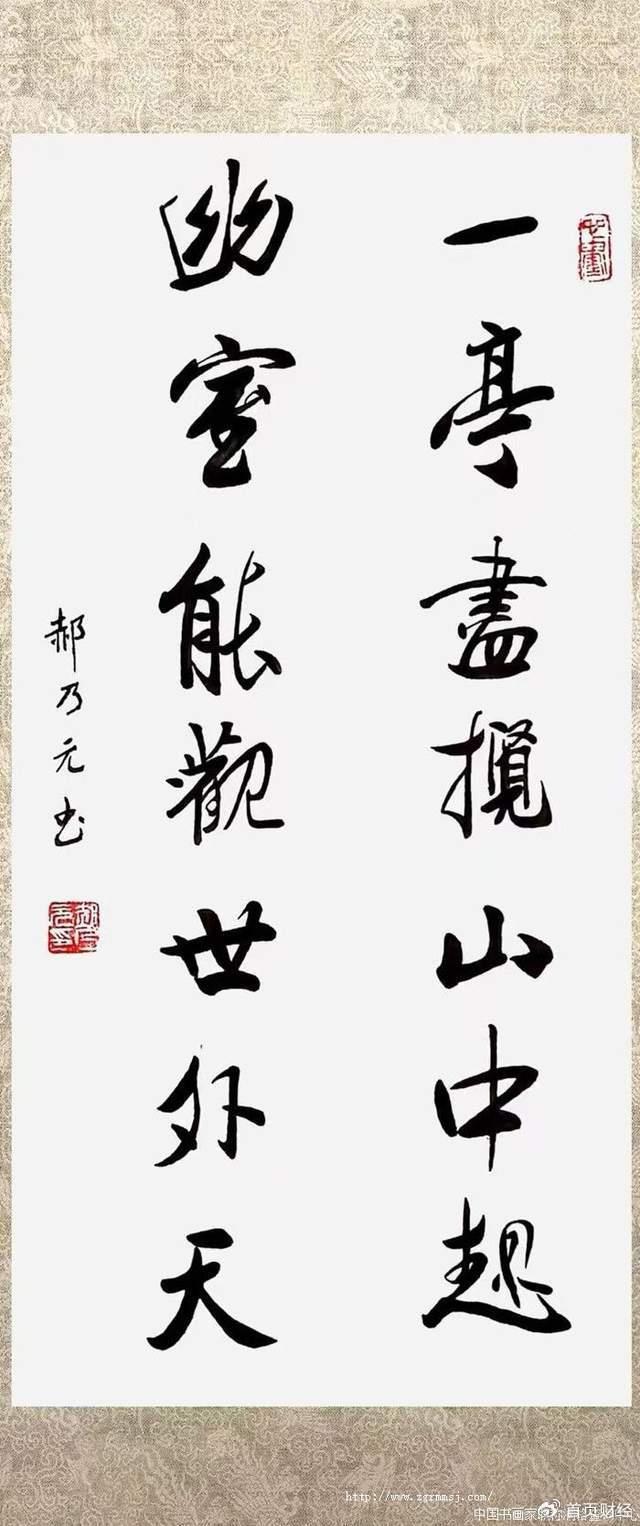 一亭盡攬山中趣
幽室能觀世外天
郝乃元书
http://www.zgrmmsj.com/
中国书画家联
首页财经